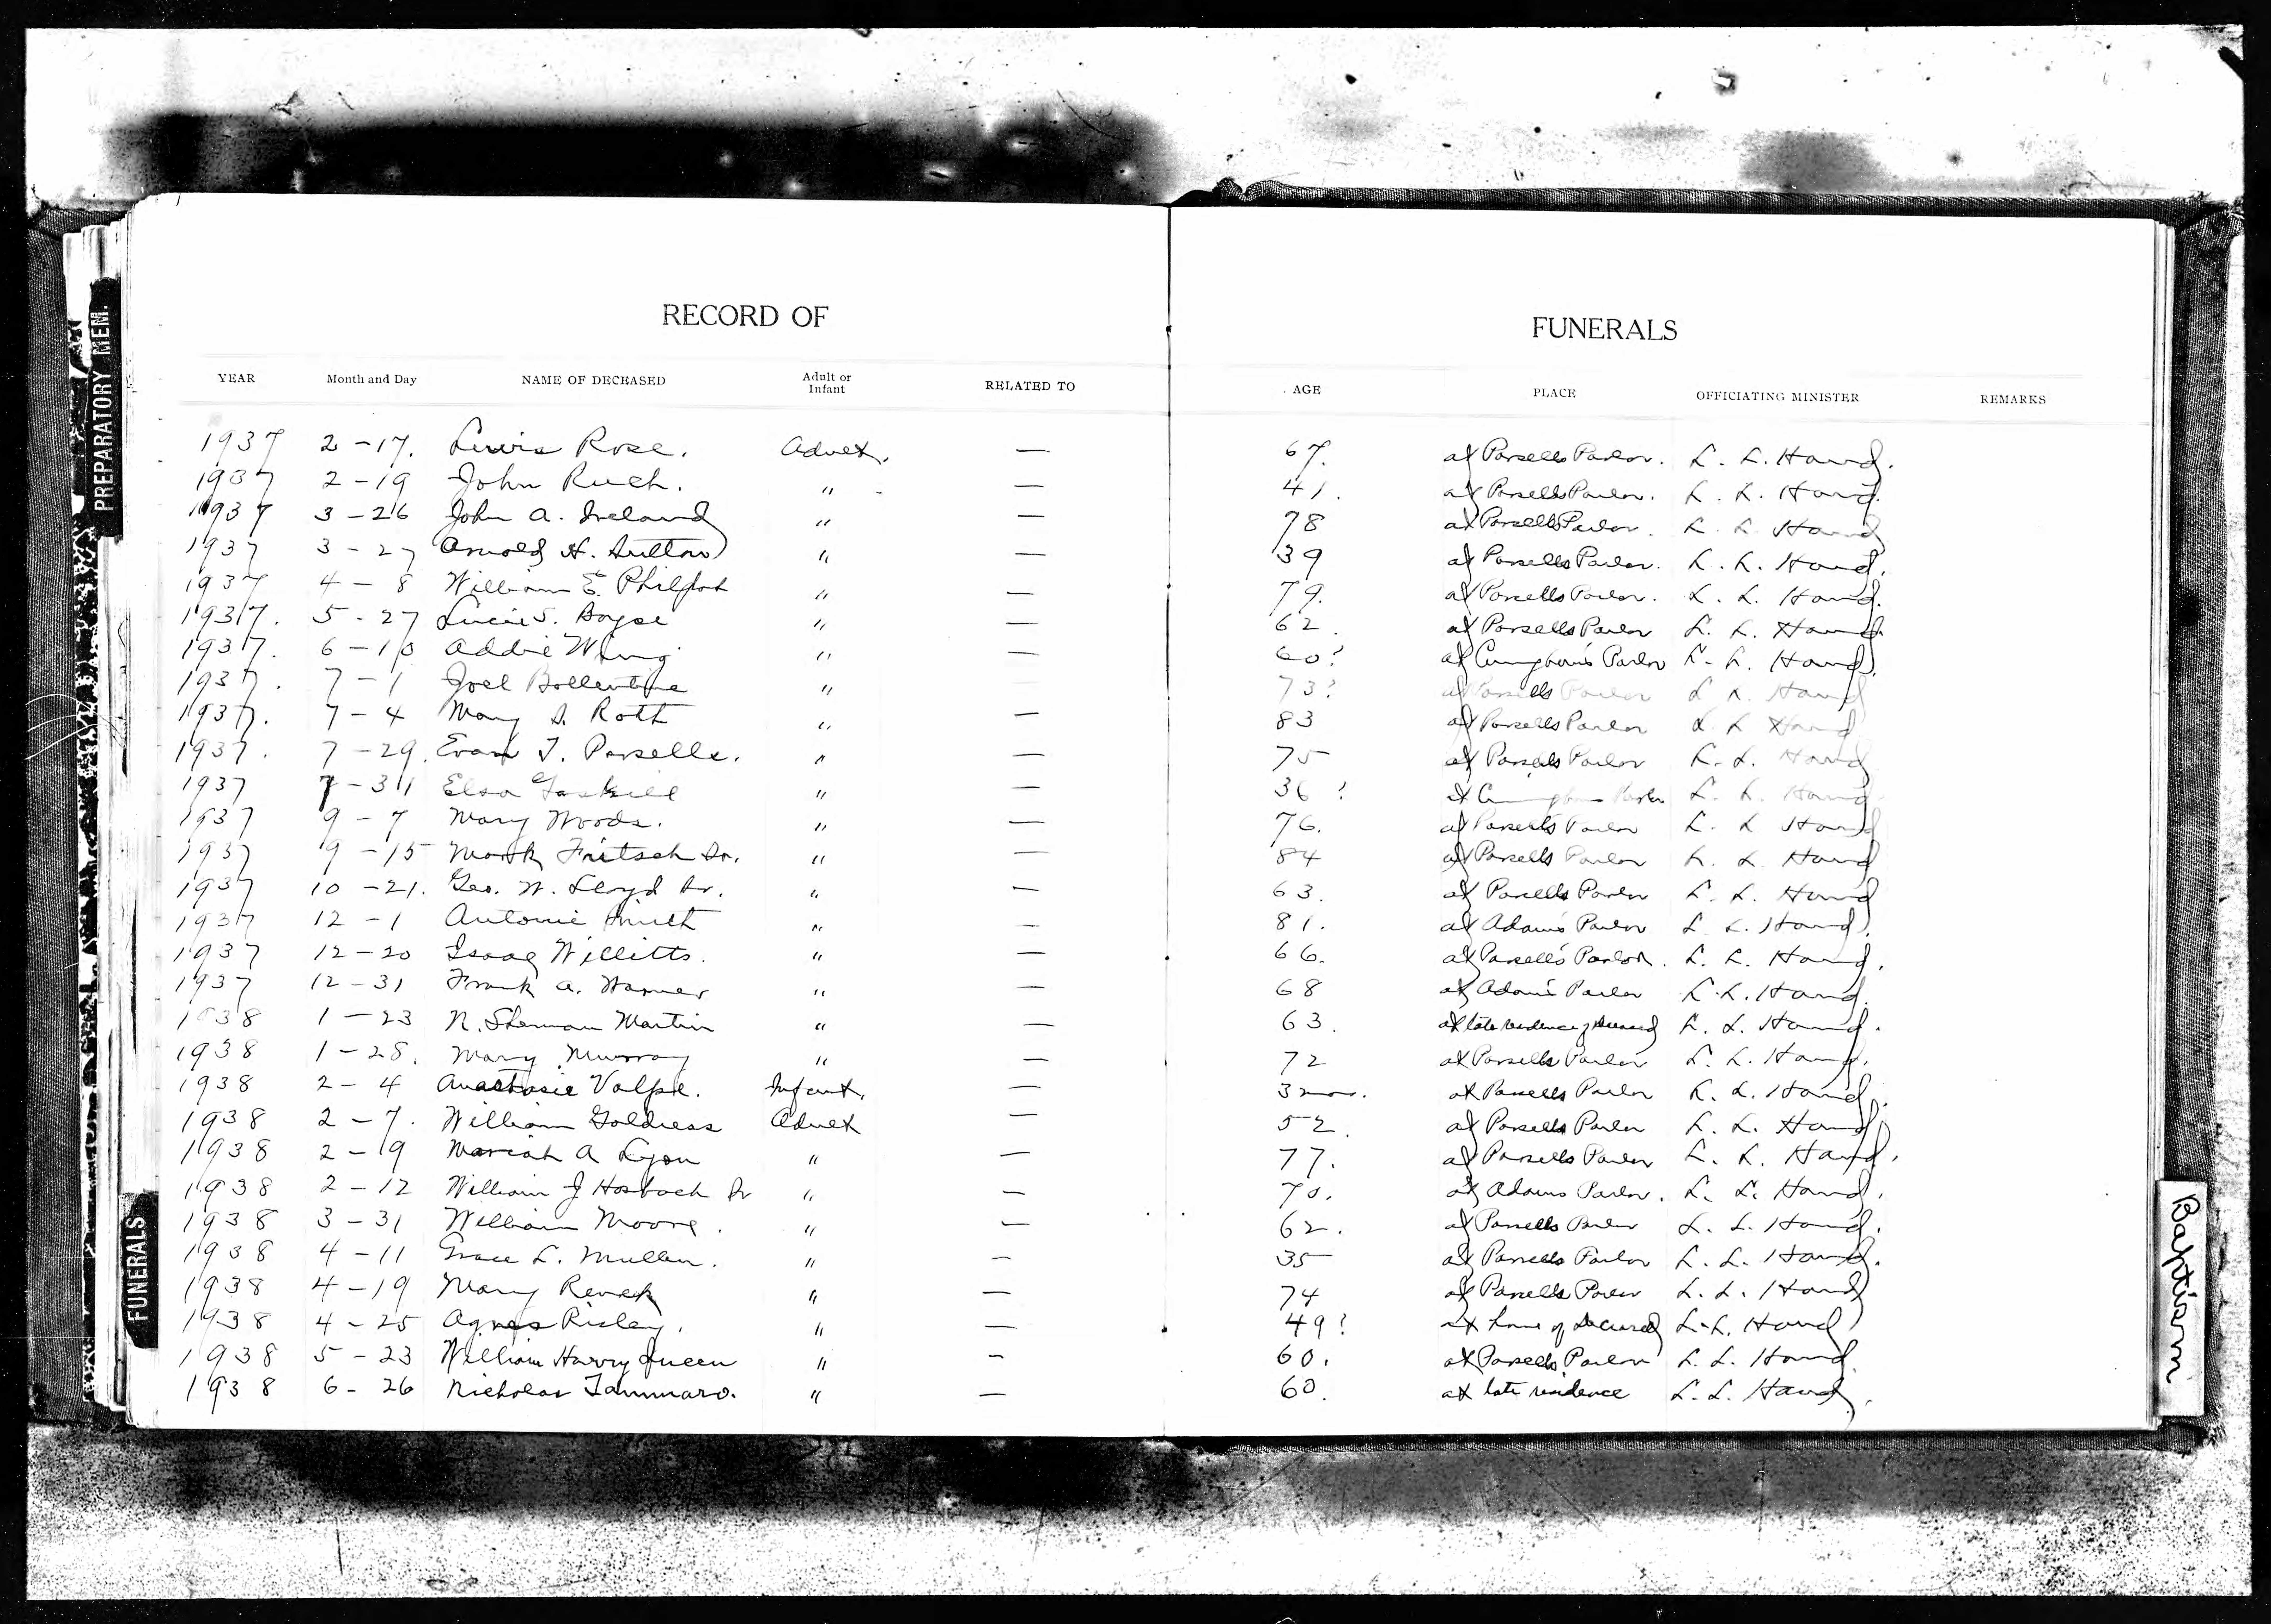 RECORD OF FUNERALS
YEAR Month and Day NAME OF DECEASED Adult or Infant RELATED TO AGE PLACE OFFICIATING MINISTER REMARKS
1937 2-17. Lewis Rose. Adult. — 67. at Parsells Parlor. L. L. Hand.
1937 2-19 John Ruch. " — 41. at Parsells Parlor. L. L. Hand.
1937 3-26 John A. Ireland " — 78 at Parsells Parlor. L. L. Hand
1937 3-27 Arnold H. Sutton " — 39 at Parsells Parlor. L. L. Hand.
1937 4-8 William E. Philpot " — 79. at Parsells Parlor. L. L. Hand.
1937. 5-27 Lucie S. Boyse " — 62. at Parsells Parlor L. L. Hand.
1937. 6-10 Addie Wing " — 60? at Parlor L. L. Hand.
1937. 7-1 Joel Bollentine " — 73? at Parsells Parlor L. L. Hand
1937. 7-4 Mary S. Roth " — 83 at Parsells Parlor L. L. Hand
1937. 7-29. Evan T. Parsells. " — 75 at Parsells Parlor L. L. Hand
1937 7-31 Elsa Gaskill " — 36? at Parlor L. L. Hand
1937 9-7 Mary Woods. " — 76. at Parsells Parlor L. L. Hand
1937 9-15 Mark Fritsch Sr. " — 84 at Parsells Parlor L. L. Hand
1937 10-21. Geo. W. Lloyd Sr. " — 63. at Parsells Parlor L. L. Hand
1937 12-1 Antonie Smith " — 81. at Adams Parlor L. L. Hand.
1937 12-20 Isaac Willitts. " — 66. at Parsells Parlor. L. L. Hand.
1937 12-31 Frank A. Warner " — 68 at Adams Parlor L. L. Hand.
1938 1-23 N. Sherman Martin " — 63. at late residence of deceased L. L. Hand.
1938 1-28. Mary Murray " — 72 at Parsells Parlor L. L. Hand.
1938 2-4 Anastasie Volpe. Infant. — 3 mos. at Parsells Parlor L. L. Hand.
1938 2-7. William Goldress Adult — 52. at Parsells Parlor L. L. Hand
1938 2-9 Mariah A Lyon " — 77. at Parsells Parlor L. L. Hand.
1938 2-12 William J Hosbach Sr " — 70. at Adams Parlor. L. L. Hand.
1938 3-31 William Moore. " — 62. at Parsells Parlor L. L. Hand.
1938 4-11 Grace L. Mullen. " — 35 at Parsells Parlor L. L. Hand.
1938 4-19 Mary Revek " — 74 at Parsells Parlor L. L. Hand
1938 4-25 Agnes Risley. " — 49? at home of Deceased L. L. Hand
1938 5-23 William Harry Queen " — 60. at Parsells Parlor L. L. Hand.
1938 6-26 Nicholas Tammaro. " — 60. at late residence L. L. Hand.
PREPARATORY MEM.
FUNERALS
Baptism